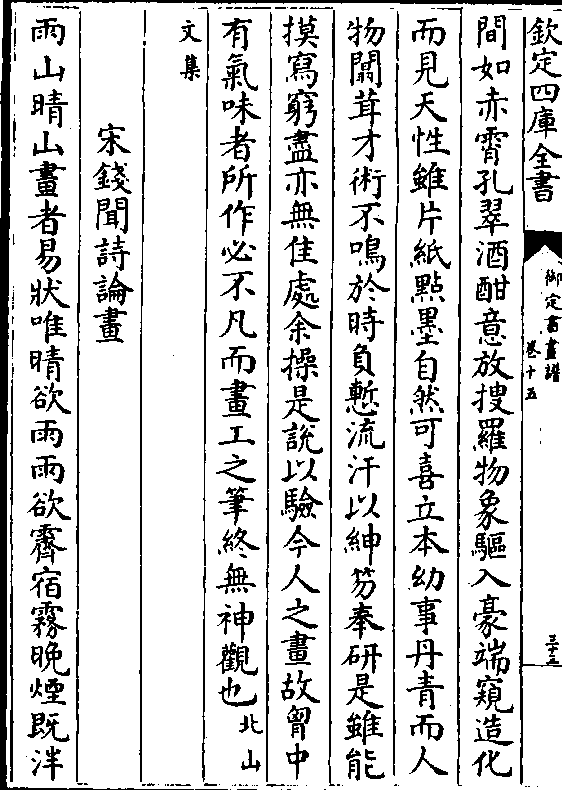 欽定四庫全書
御定書畫譜
卷十五
三十三
間如赤霄孔翠酒酣意放搜羅物象驅入豪端窺造化
而見天性雖片紙點墨自然可喜立本幼事丹青而人
物闒茸才術不鳴於時負慙流汗以紳笏奉研是雖能
摸寫窮盡亦無佳處余操是說以驗今人之畫故胷中
有氣味者所作必不凡而畫工之筆終無神觀也北山
文集
宋錢聞詩論畫
雨山晴山畫者易狀唯晴欲雨雨欲霽宿霧晚煙既泮